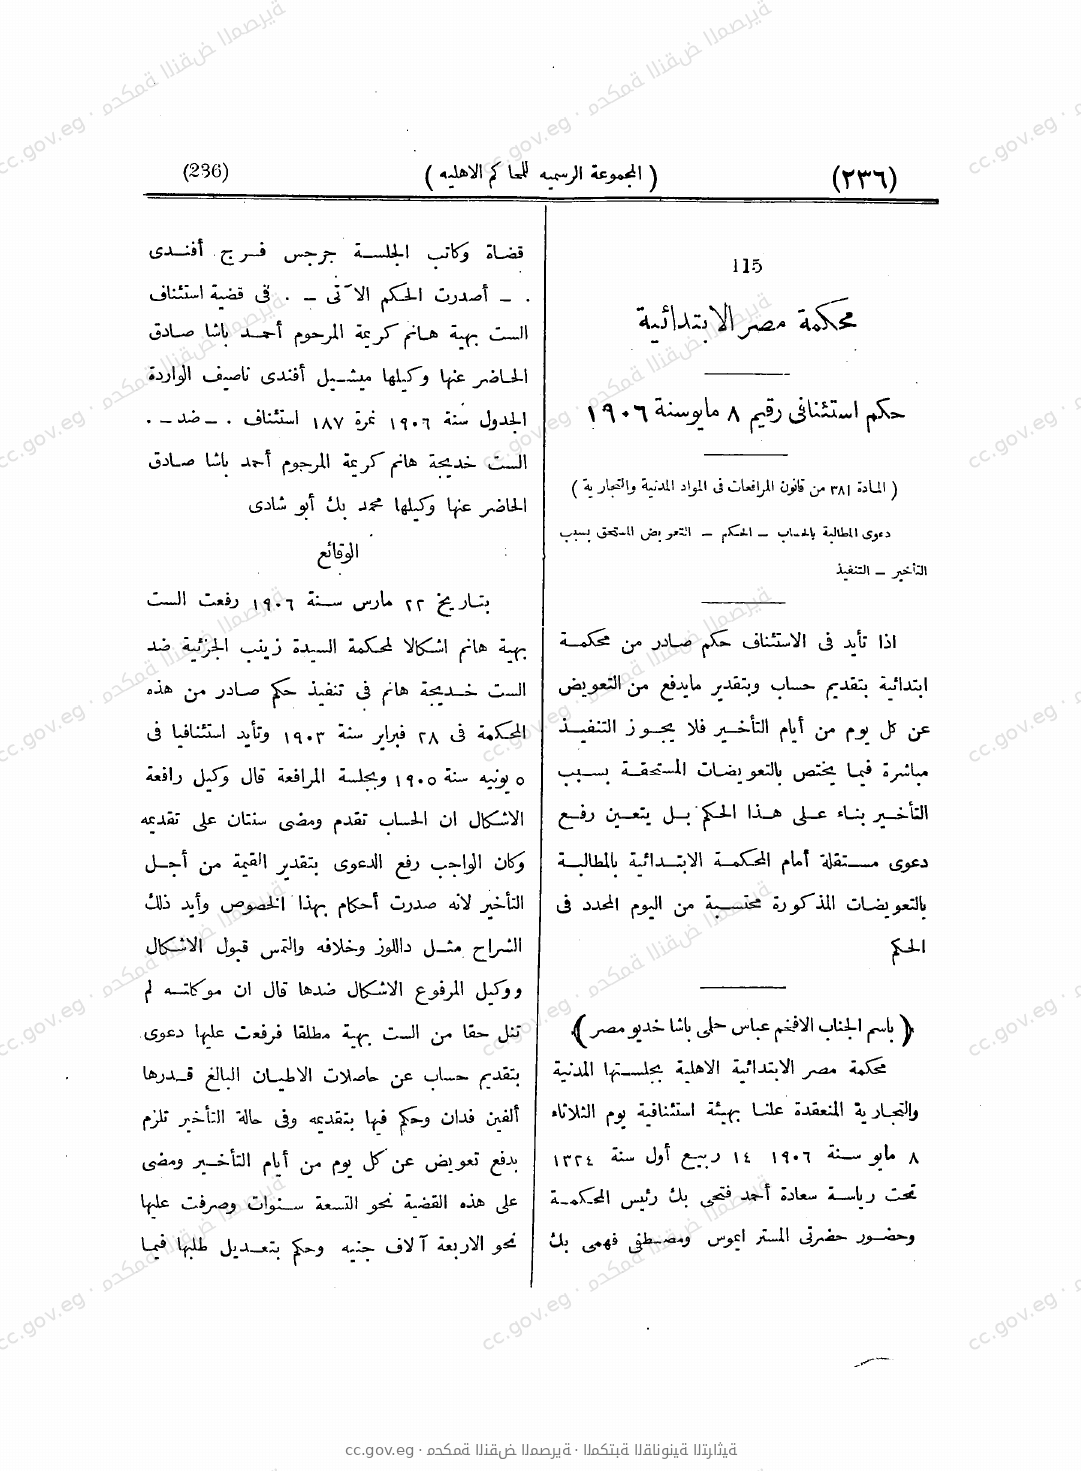 (٢٣٦)
( المجموعة الرسميه للمحاكم الاهليه )
(236)
115
محكمة مصر الابتدائية
حكم استئنافى رقيم ٨ مايو سنة ١٩٠٦
( المادة ٣٨١ من قانون المرافعات فى المواد المدنية والتجارية )
دعوى المطالبة بالحساب ــ الحكم ــ التعويض المستحق بسبب
التأخير ــ التنفيذ
اذا تأيد فى الاستئناف حكم صادر من محكمة
ابتدائية بتقديم حساب وبتقدير مايدفع من التعويض
عن كل يوم من أيام التأخير فلا يجوز التنفيذ
مباشرة فيما يختص بالتعويضات المستحقة بسبب
التأخير بناء على هذا الحكم بل يتعين رفع
دعوى مستقلة أمام المحكمة الابتدائية بالمطالبة
بالتعويضات المذكورة محتسبة من اليوم المحدد فى
الحكم
( باسم الجناب الافخم عباس حلمى باشا خديو مصر )
محكمة مصر الابتدائية الاهلية بجلستها المدنية
والتجارية المنعقدة علنا بهيئة استئنافية يوم الثلاثاء
٨ مايو سنة ١٩٠٦ ١٤ ربيع أول سنة ١٣٢٤
تحت رياسة سعادة أحمد فتحى بك رئيس المحكمة
وحضور حضرتى المستر ايموس ومصطفى فهمى بك
قضاة وكاتب الجلسة جرجس فرج أفندى
. ــ أصدرت الحكم الآتى ــ . فى قضية استئناف
الست بهية هانم كريمة المرحوم أحمد باشا صادق
الحاضر عنها وكيلها ميشيل أفندى ناصيف الواردة
الجدول سنة ١٩٠٦ نمرة ١٨٧ استئناف . ــ ضد ــ .
الست خديجة هانم كريمة المرحوم أحمد باشا صادق
الحاضر عنها وكيلها محمد بك أبو شادى
الوقائع
بتاريخ ٢٢ مارس سنة ١٩٠٦ رفعت الست
بهية هانم اشكالا لمحكمة السيدة زينب الجزئية ضد
الست خديجة هانم فى تنفيذ حكم صادر من هذه
المحكمة فى ٢٨ فبراير سنة ١٩٠٣ وتأيد استئنافيا فى
٥ يونيه سنة ١٩٠٥ وبجلسة المرافعة قال وكيل رافعة
الاشكال ان الحساب تقدم ومضى سنتان على تقديمه
وكان الواجب رفع الدعوى بتقدير القيمة من أجل
التأخير لانه صدرت أحكام بهذا الخصوص وأيد ذلك
الشراح مثل داللوز وخلافه والتمس قبول الاشكال
ووكيل المرفوع الاشكال ضدها قال ان موكلته لم
تنل حقا من الست بهية مطلقا فرفعت عليها دعوى
بتقديم حساب عن حاصلات الاطيان البالغ قدرها
ألفين فدان وحكم فيها بتقديمه وفى حالة التأخير تلزم
بدفع تعويض عن كل يوم من أيام التأخير ومضى
على هذه القضية نحو التسعة سنوات وصرفت عليها
نحو الاربعة آلاف جنيه وحكم بتعديل طلبها فيما
cc.gov.eg · محكمة النقض المصرية · المكتبة القانونية التراثية